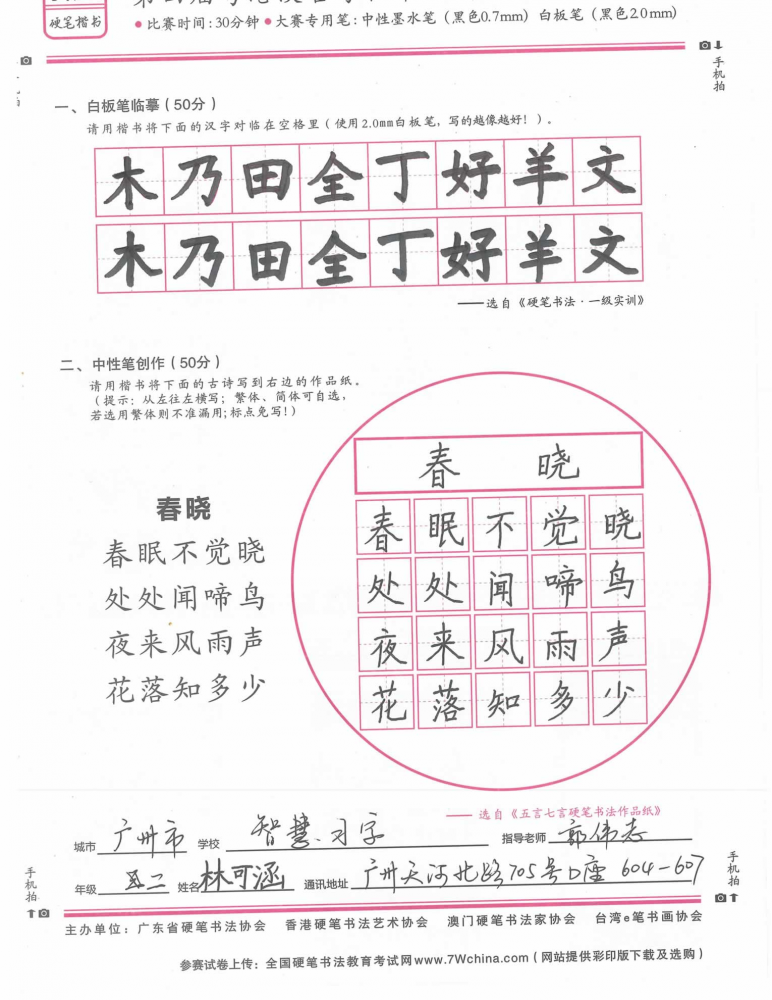 硬笔楷书
●比赛时间:30分钟●大赛专用笔:中性墨水笔(黑色0.7mm) 白板笔(黑色20mm)
手机拍
一、白板笔临摹(50分)
请用楷书将下面的汉字对临在空格里(使用2.0mm白板笔,写的越像越好!)。
木乃田全丁好羊文
木乃田全丁好羊文
——选自《硬笔书法·一级实训》
二、中性笔创作(50分)
请用楷书将下面的古诗写到右边的作品纸。
(提示:从左往左横写;繁体、简体可自选,
若选用繁体则不准漏用;标点免写!)
春晓
春眠不觉晓
处处闻啼鸟
夜来风雨声
花落知多少
春 晓
春眠不觉晓
处处闻啼鸟
夜来风雨声
花落知多少
——选自《五言七言硬笔书法作品纸》
城市 广州市 学校 智慧习字 指导老师 郭伟志
年级 五二 姓名 林可涵 通讯地址 广州天河北路705号D座 604-607
手机拍
手机拍
主办单位:广东省硬笔书法协会 香港硬笔书法艺术协会 澳门硬笔书法家协会 台湾e笔书画协会
参赛试卷上传:全国硬笔书法教育考试网www.7Wchina.com(网站提供彩印版下载及选购)